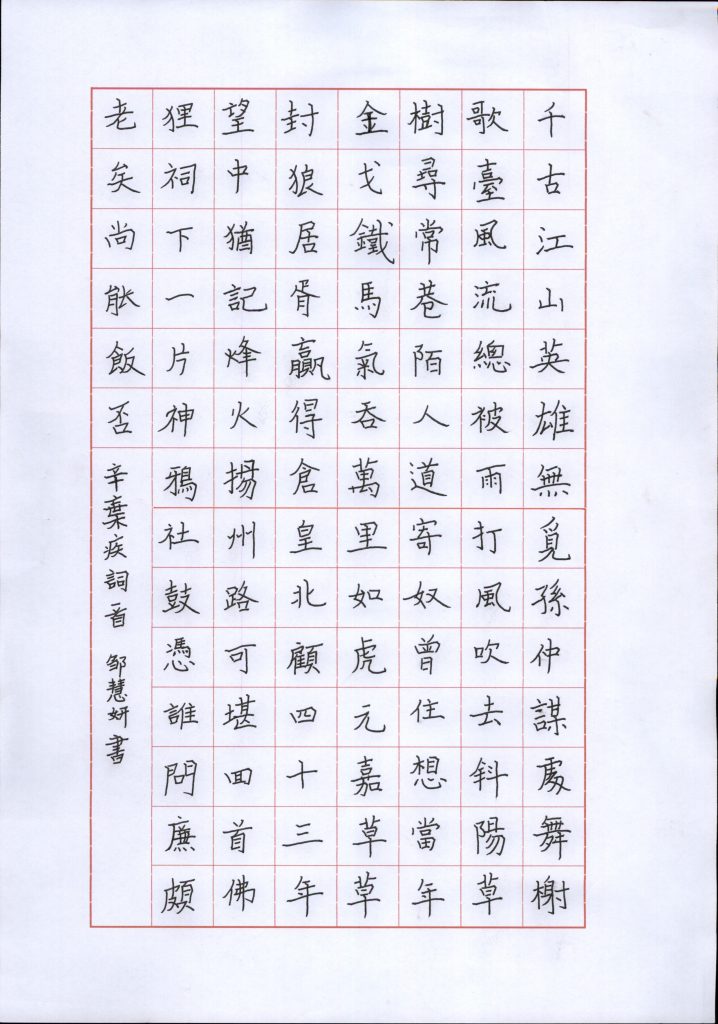 千古江山英雄無覓孫仲謀處舞榭
歌臺風流總被雨打風吹去斜陽草
樹尋常巷陌人道寄奴曾住想當年
金戈鐵馬氣吞萬里如虎元嘉草草
封狼居胥贏得倉皇北顧四十三年
望中猶記烽火揚州路可堪回首佛
狸祠下一片神鴉社鼓憑誰問廉頗
老矣尚能飯否
辛棄疾詞一首 邹慧妍書